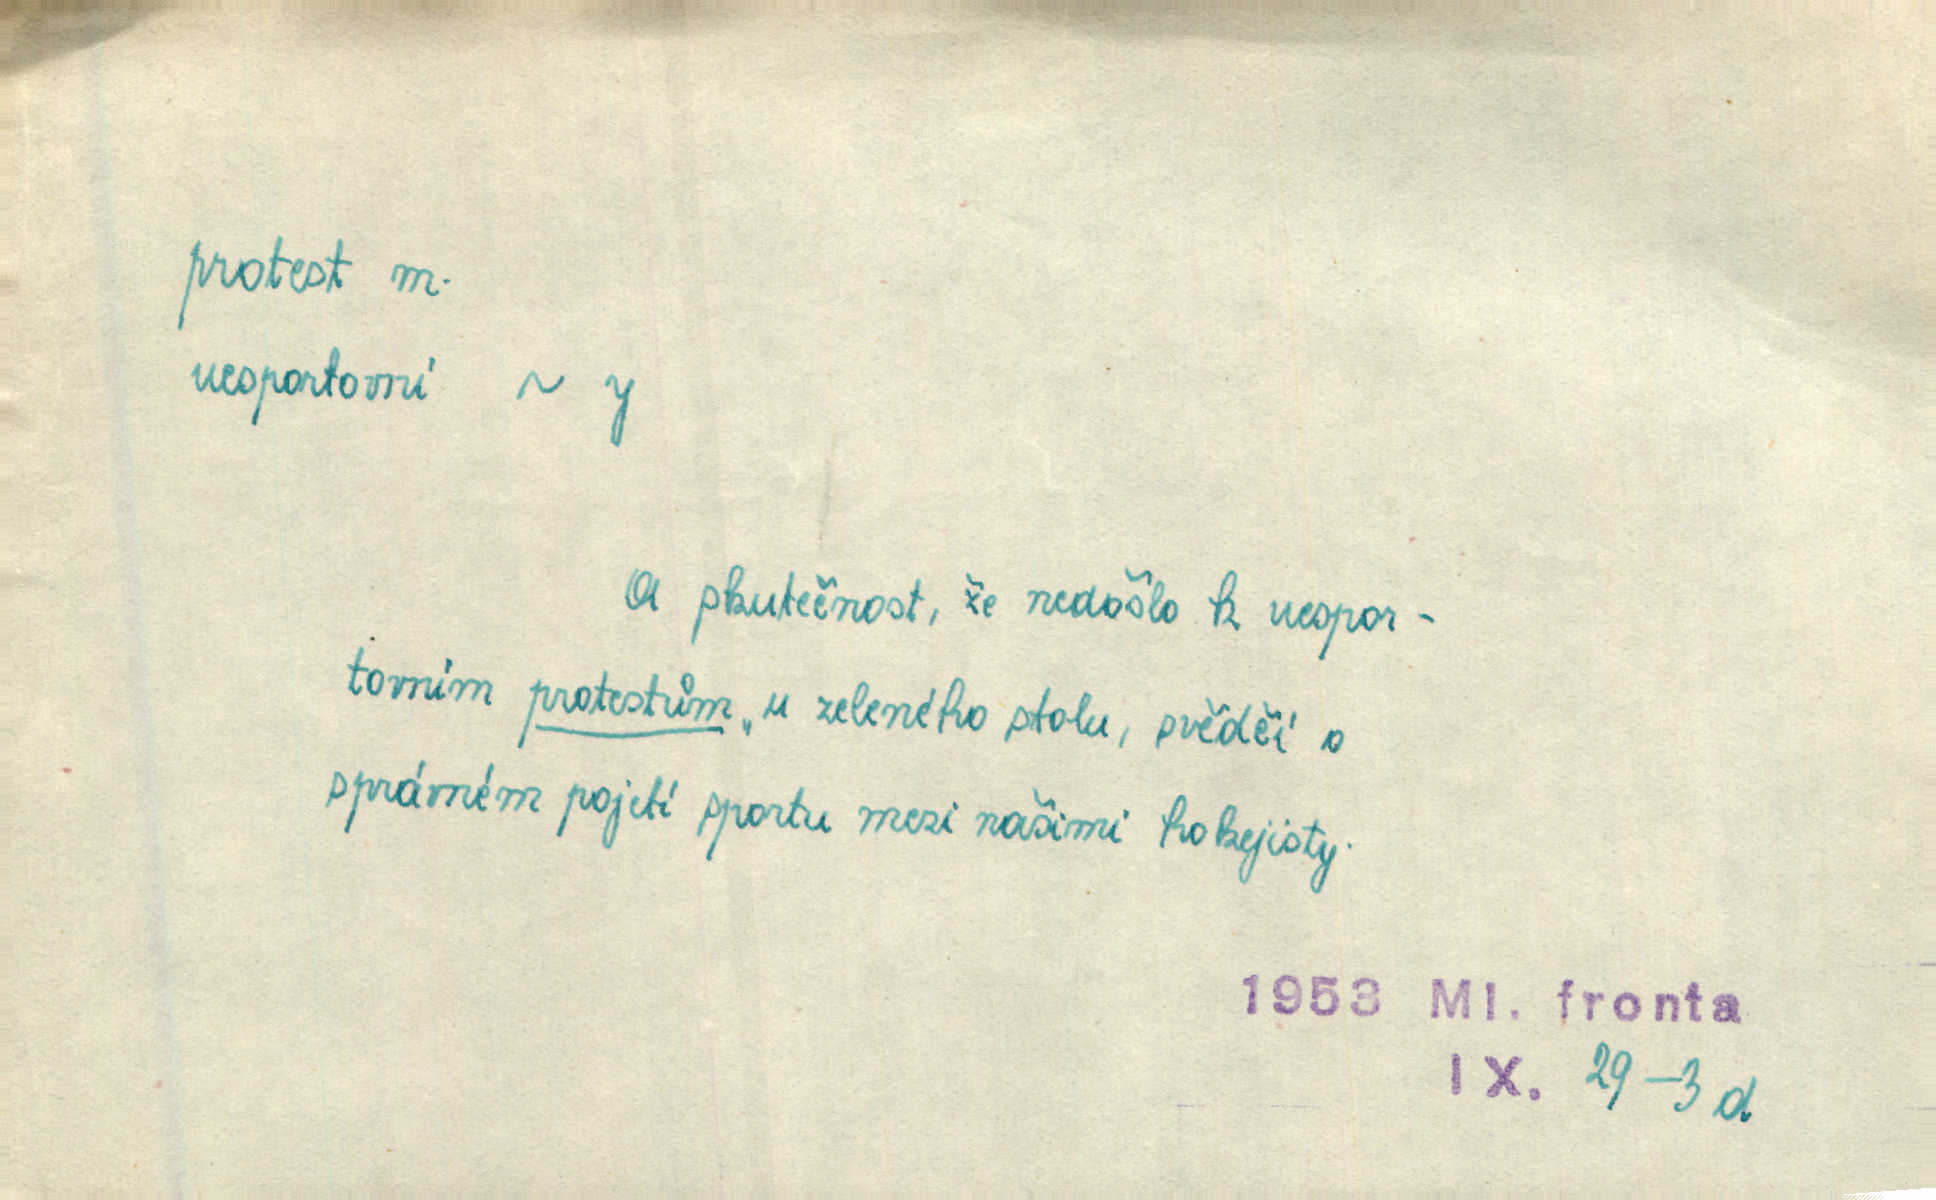 protest m.
nesportovní ~ y
A skutečnost, že nedošlo k nespor-
tovním protestům „u zeleného stolu, svěděí o
správném pojetí sportu mezi našimi hokejisty.
1953 Ml. fronta
IX. 29-3 d